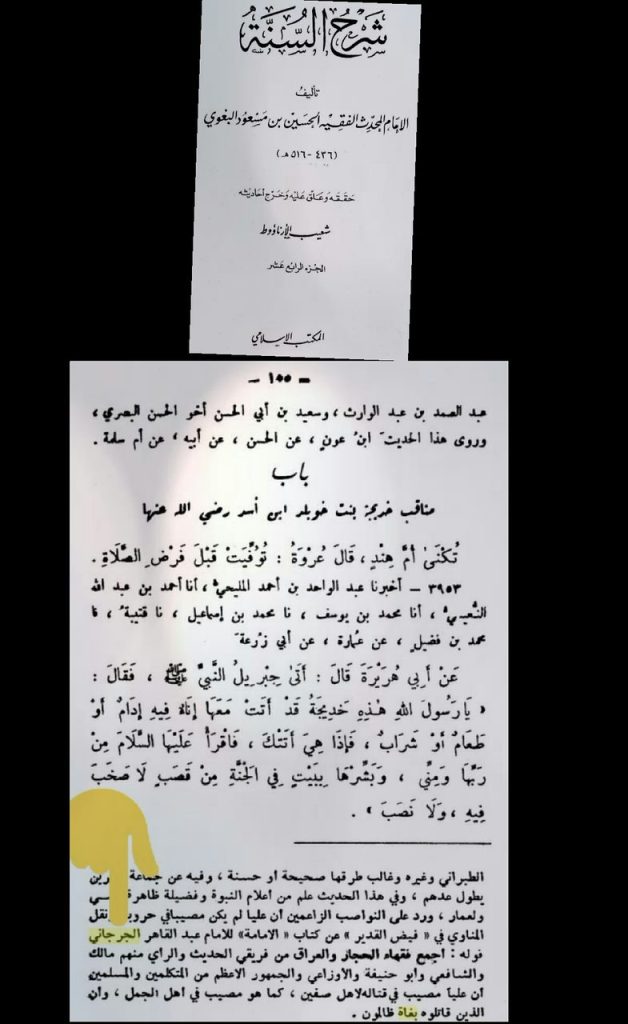 شرح السنة
تأليف
الإمام المحدث الفقيه الحسين بن مسعود البغوي
(٤٣٦ - ٥١٦ هـ)
حققه وعلق عليه وخرج أحاديثه
شعيب الأرناؤوط
الجزء الرابع عشر
المكتب الإسلامي
— ١٥٥ —
عبد الصمد بن عبد الوارث ، وسعيد بن أبي الحسن أخو الحسن البصري ،
وروى هذا الحديث ابن عون ، عن الحسن ، عن أبيه ، عن أم سلمة .
باب
مناقب خديجة بنت خويلد ابن أسد رضي الله عنها
تُكْنَىٰ أُمَّ هِنْدٍ ، قَالَ عُرْوَةُ : تُوُفِّيَتْ قَبْلَ فَرْضِ الصَّلَاةِ .
٣٩٥٣ — أخبرنا عبد الواحد بن أحمد المليحي ، أنا أحمد بن عبد الله
النُّعيمي ، أنا محمد بن يوسف ، نا محمد بن إسماعيل ، نا قتيبة ، نا
محمد بن فضيل ، عن عمارة ، عن أبي زرعة
عَنْ أَبِي هُرَيْرَةَ قَالَ : أَتَىٰ جِبْرِيلُ النَّبِيَّ ﷺ ، فَقَالَ :
« يَا رَسُولَ اللهِ هٰذِهِ خَدِيجَةُ قَدْ أَتَتْ مَعَهَا إِنَاءٌ فِيهِ إِدَامٌ أَوْ
طَعَامٌ أَوْ شَرَابٌ ، فَإِذَا هِيَ أَتَتْكَ ، فَاقْرَأْ عَلَيْهَا السَّلَامَ مِنْ
رَبِّهَا وَمِنِّي ، وَبَشِّرْهَا بِبَيْتٍ فِي الْجَنَّةِ مِنْ قَصَبٍ لَا صَخَبَ
فِيهِ ، وَلَا نَصَبَ » .
الطبراني وغيره وغالب طرقها صحيحة أو حسنة ، وفيه عن جماعة
يطول عدهم ، وفي هذا الحديث علم من أعلام النبوة وفضيلة ظاهرة
ولعمار ، ورد على النواصب الزاعمين أن عليا لم يكن مصيبا في حروبه ونقل
المناوي في « فيض القدير » عن كتاب « الامامة » للامام عبد القاهر الجرجاني
قوله : أجمع فقهاء الحجاز والعراق من فريقي الحديث والراي منهم مالك
والشافعي وأبو حنيفة والأوزاعي والجمهور الاعظم من المتكلمين والمسلمين
أن علياً مصيب في قتاله لاهل صفين ، كما هو مصيب في أهل الجمل ، وأن
الذين قاتلوه بغاة ظالمون .